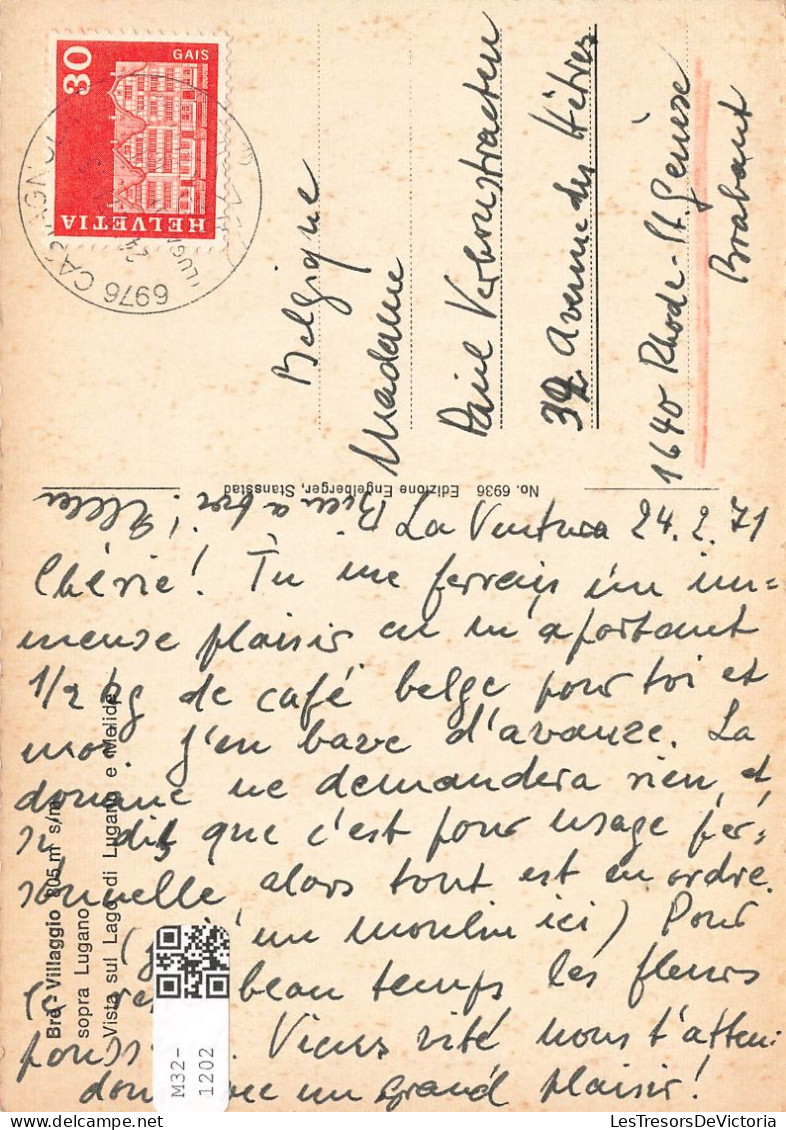 30
GAIS
HELVETIA
6976 CASTAGNOLA
Belgique
Madame
Paul Verbonstraeten
39 Avenue des Hêtres
1640 Rhode-St. Genèse
Brabant
No. 6936 Edizione Engelberger, Stansstad
Bien a toi!
La Ventura 24.2.71
Chérie! Tu me ferrais un im-
mense plaisir en m'aportant
1/2 kg de café belge pour toi et
moi. J'en bave d'avanze. La
douane ne demandera rien, et
si dis que c'est pour usage per-
sonnelle alors tout est en ordre.
(j'ai un moulin ici) Pour
le beau temps les fleurs
Viens vite nous t'atten-
dons un grand plaisir!
Bré-Villaggio 805 m s/m
sopra Lugano
Vista sul Lago di Lugano e Melide
M32-
1202
LesTresorsDeVictoria